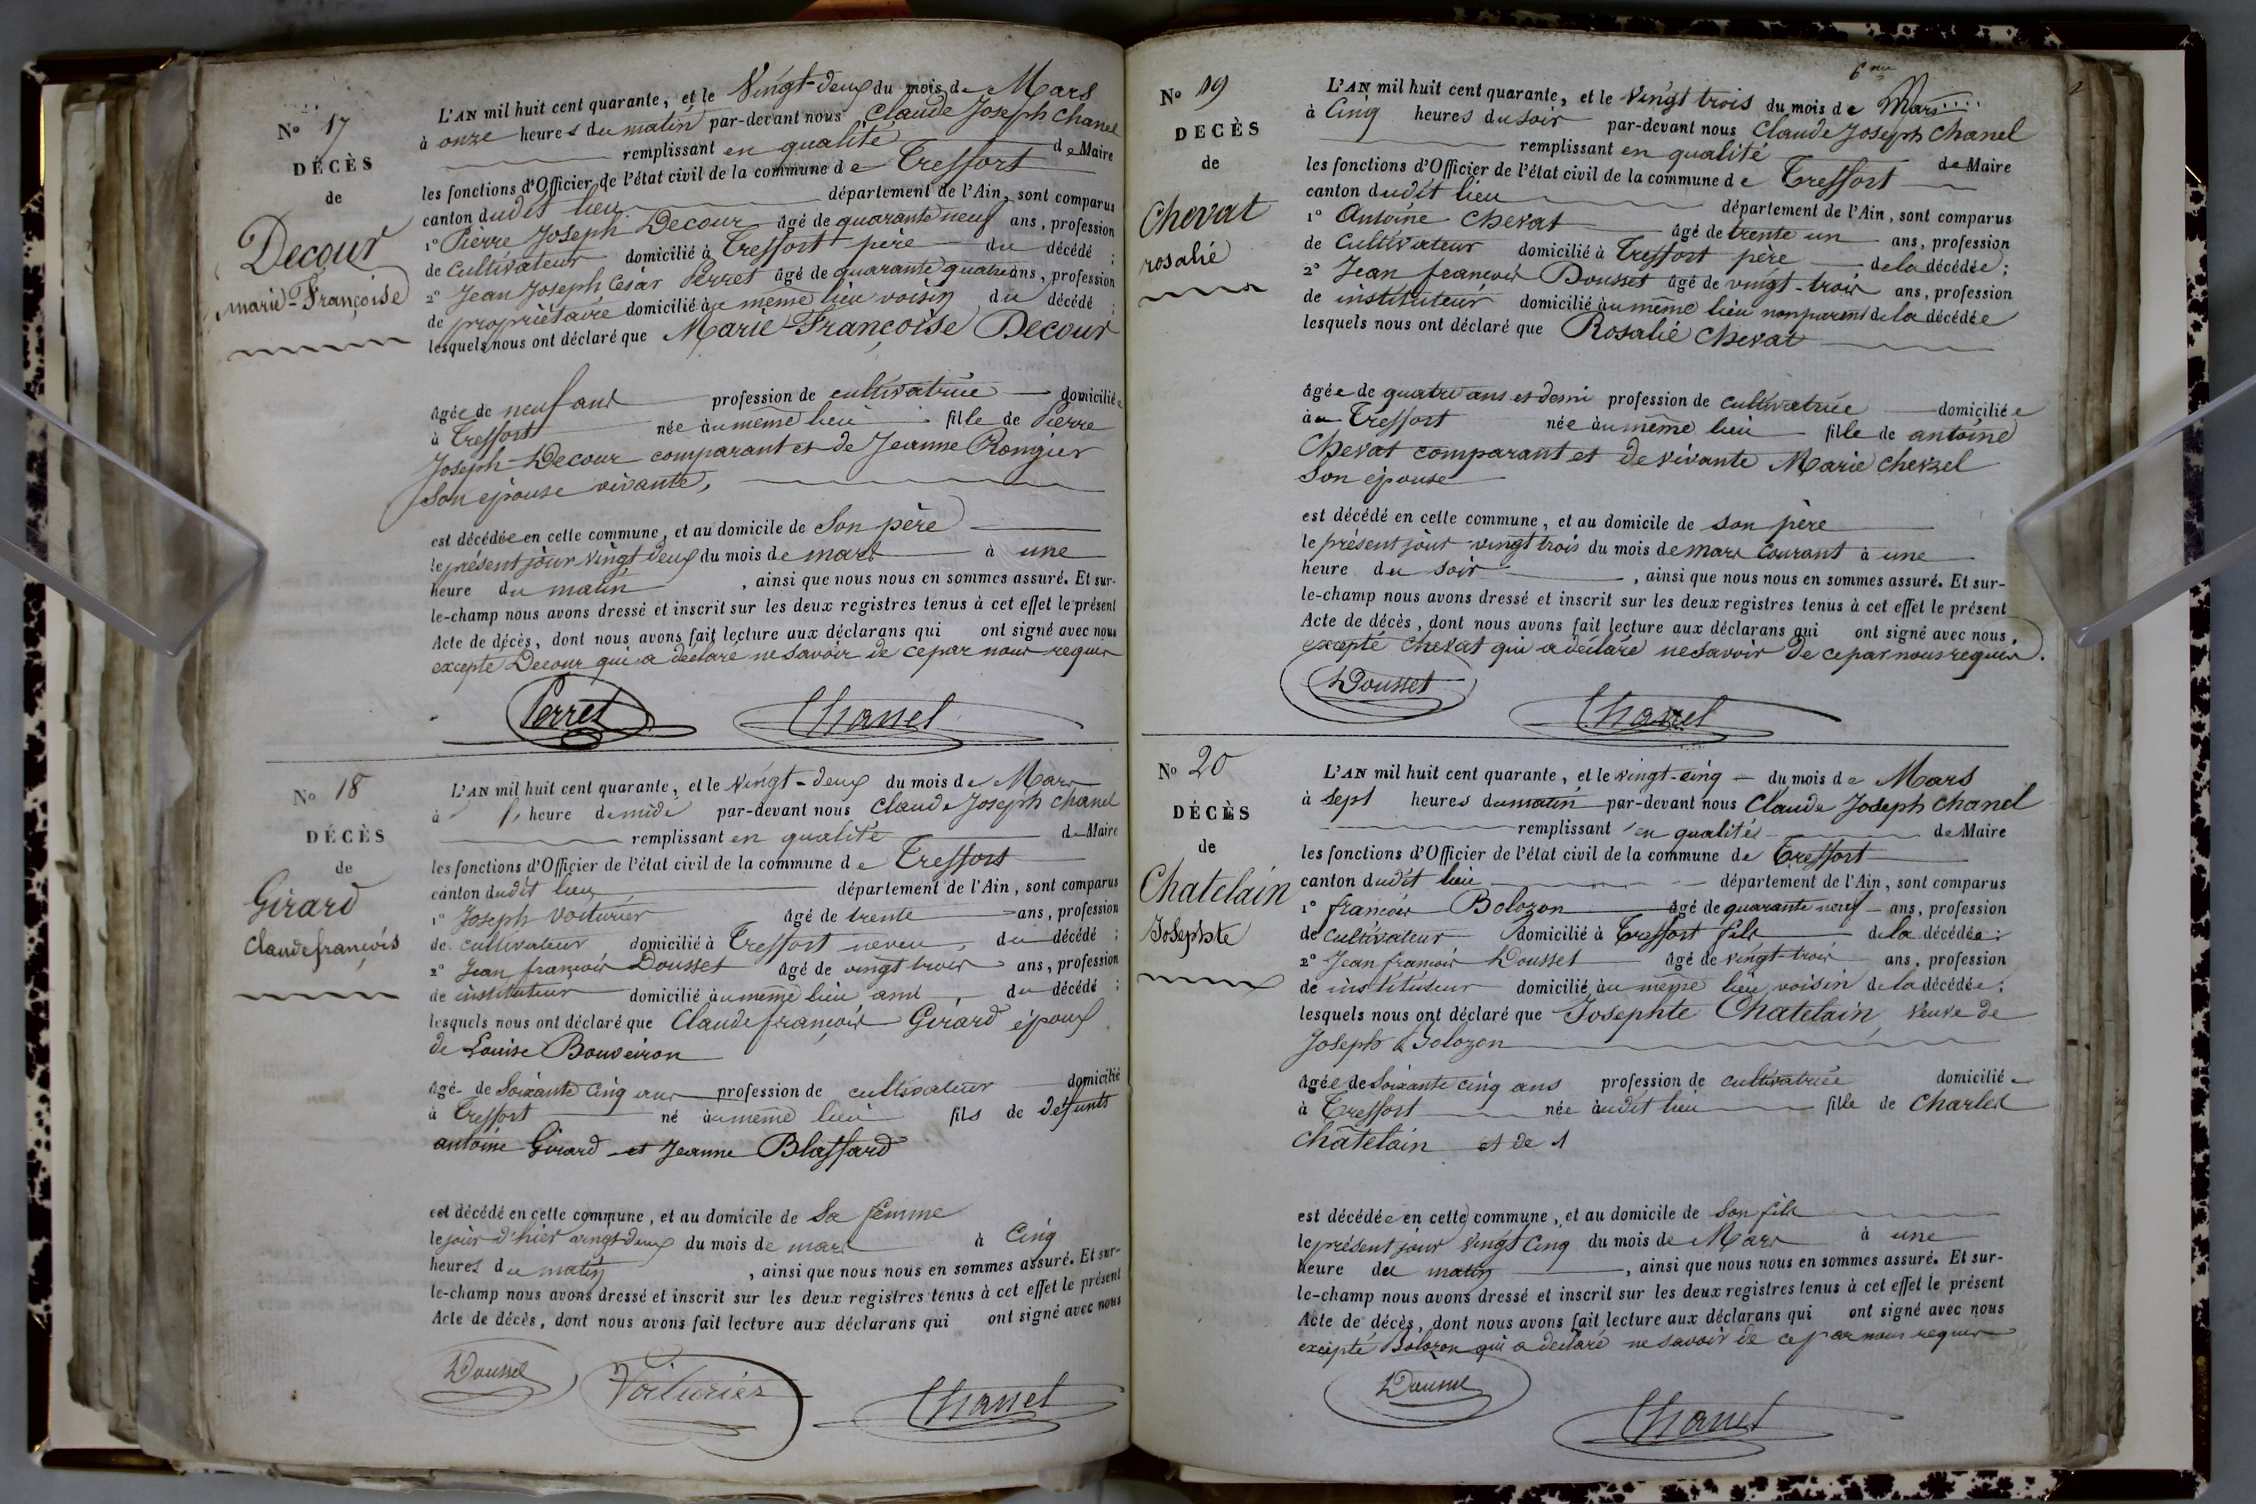 No 17
DÉCÈS
de
Decour
marie-Françoise
L'AN mil huit cent quarante, et le Vingt-deux du mois de Mars
à onze heures du matin par-devant nous Claude Joseph Chanel
remplissant en qualité de Maire
les fonctions d'Officier de l'état civil de la commune de Treffort
canton dudit lieu département de l'Ain, sont comparus
1o Pierre Joseph Decour âgé de quarante neuf ans, profession
de cultivateur domicilié à Treffort père du décédé ;
2o Jean Joseph César Perret âgé de quarante quatre ans, profession
de propriétaire domicilié au même lieu voisin du décédé ;
lesquels nous ont déclaré que Marie-Françoise Decour
âgée de neuf ans profession de cultivatrice domiciliée
à Treffort née au même lieu fille de Pierre
Joseph Decour comparant et de Jeanne Rongier
Son épouse vivante,
est décédée en cette commune, et au domicile de Son père
le présent jour vingt deux du mois de mars à une
heure du matin, ainsi que nous nous en sommes assuré. Et sur-
le-champ nous avons dressé et inscrit sur les deux registres tenus à cet effet le présent
Acte de décès, dont nous avons fait lecture aux déclarans qui ont signé avec nous
excepté Decour qui a déclaré ne savoir de ce par nous requis
Perret Chanel
No 18
DÉCÈS
de
Girard
Claude françois
L'AN mil huit cent quarante, et le Vingt-deux du mois de Mars
à 1, heure de midi par-devant nous Claude Joseph Chanel
remplissant en qualité de Maire
les fonctions d'Officier de l'état civil de la commune de Treffort
canton dudit lieu département de l'Ain, sont comparus
1o Joseph Voiturier âgé de trente ans, profession
de cultivateur domicilié à Treffort neveu du décédé ;
2o Jean françois Dousset âgé de vingt trois ans, profession
de instituteur domicilié au même lieu ami du décédé ;
lesquels nous ont déclaré que Claude françois Girard époux
de Louise Bouveiron
âgé de Soixante cinq ans profession de cultivateur domicilié
à Treffort né au même lieu fils de défunts
antoine Girard et Jeanne Blaffard
est décédé en cette commune, et au domicile de Sa femme
le jour d'hier vingt deux du mois de mars à Cinq
heures du matin, ainsi que nous nous en sommes assuré. Et sur-
le-champ nous avons dressé et inscrit sur les deux registres tenus à cet effet le présent
Acte de décès, dont nous avons fait lecture aux déclarans qui ont signé avec nous
Dousset Voiturier Chanel
6me
No 19
DECÈS
de
Chevat
rosalie
L'AN mil huit cent quarante, et le Vingt trois du mois de Mars
à Cinq heures du soir par-devant nous Claude Joseph Chanel
remplissant en qualité de Maire
les fonctions d'Officier de l'état civil de la commune de Treffort
canton dudit lieu département de l'Ain, sont comparus
1o Antoine Chevat âgé de trente un ans, profession
de Cultivateur domicilié à Treffort père de la décédée ;
2o Jean françois Dousset âgé de vingt-trois ans, profession
de instituteur domicilié au même lieu non parent de la décédée
lesquels nous ont déclaré que Rosalie Chevat
âgée de quatre ans et demi profession de cultivatrice domiciliée
à Treffort née au même lieu fille de antoine
Chevat comparant et de vivante Marie
Son épouse
est décédé en cette commune, et au domicile de son père
le présent jour vingt trois du mois de mars Courant à une
heure du soir, ainsi que nous nous en sommes assuré. Et sur-
le-champ nous avons dressé et inscrit sur les deux registres tenus à cet effet le présent
Acte de décès, dont nous avons fait lecture aux déclarans qui ont signé avec nous,
excepté Chevat qui a déclaré ne savoir de ce par nous requis.
Dousset Chanel
No 20
DÉCÈS
de
Chatelain
Josephte
L'AN mil huit cent quarante, et le vingt-cinq du mois de Mars
à sept heures du matin par-devant nous Claude Joseph Chanel
remplissant en qualité de Maire
les fonctions d'Officier de l'état civil de la commune de Treffort
canton dudit lieu département de l'Ain, sont comparus
1o françois Bolozon âgé de quarante neuf ans, profession
de cultivateur domicilié à Treffort fils de la décédée ;
2o Jean françois Dousset âgé de vingt-trois ans, profession
de instituteur domicilié au même lieu voisin de la décédée ;
lesquels nous ont déclaré que Josephte Chatelain, veuve de
Joseph Bolozon
âgée de Soixante cinq ans profession de cultivatrice domiciliée
à Treffort née audit lieu fille de Charles
Châtelain et de 1
est décédée en cette commune, et au domicile de Son fils
le présent jour vingt Cinq du mois de Mars à une
heure du matin, ainsi que nous nous en sommes assuré. Et sur-
le-champ nous avons dressé et inscrit sur les deux registres tenus à cet effet le présent
Acte de décès, dont nous avons fait lecture aux déclarans qui ont signé avec nous
excepté Bolozon qui a déclaré ne savoir de ce par nous requis
Dousset Chanel